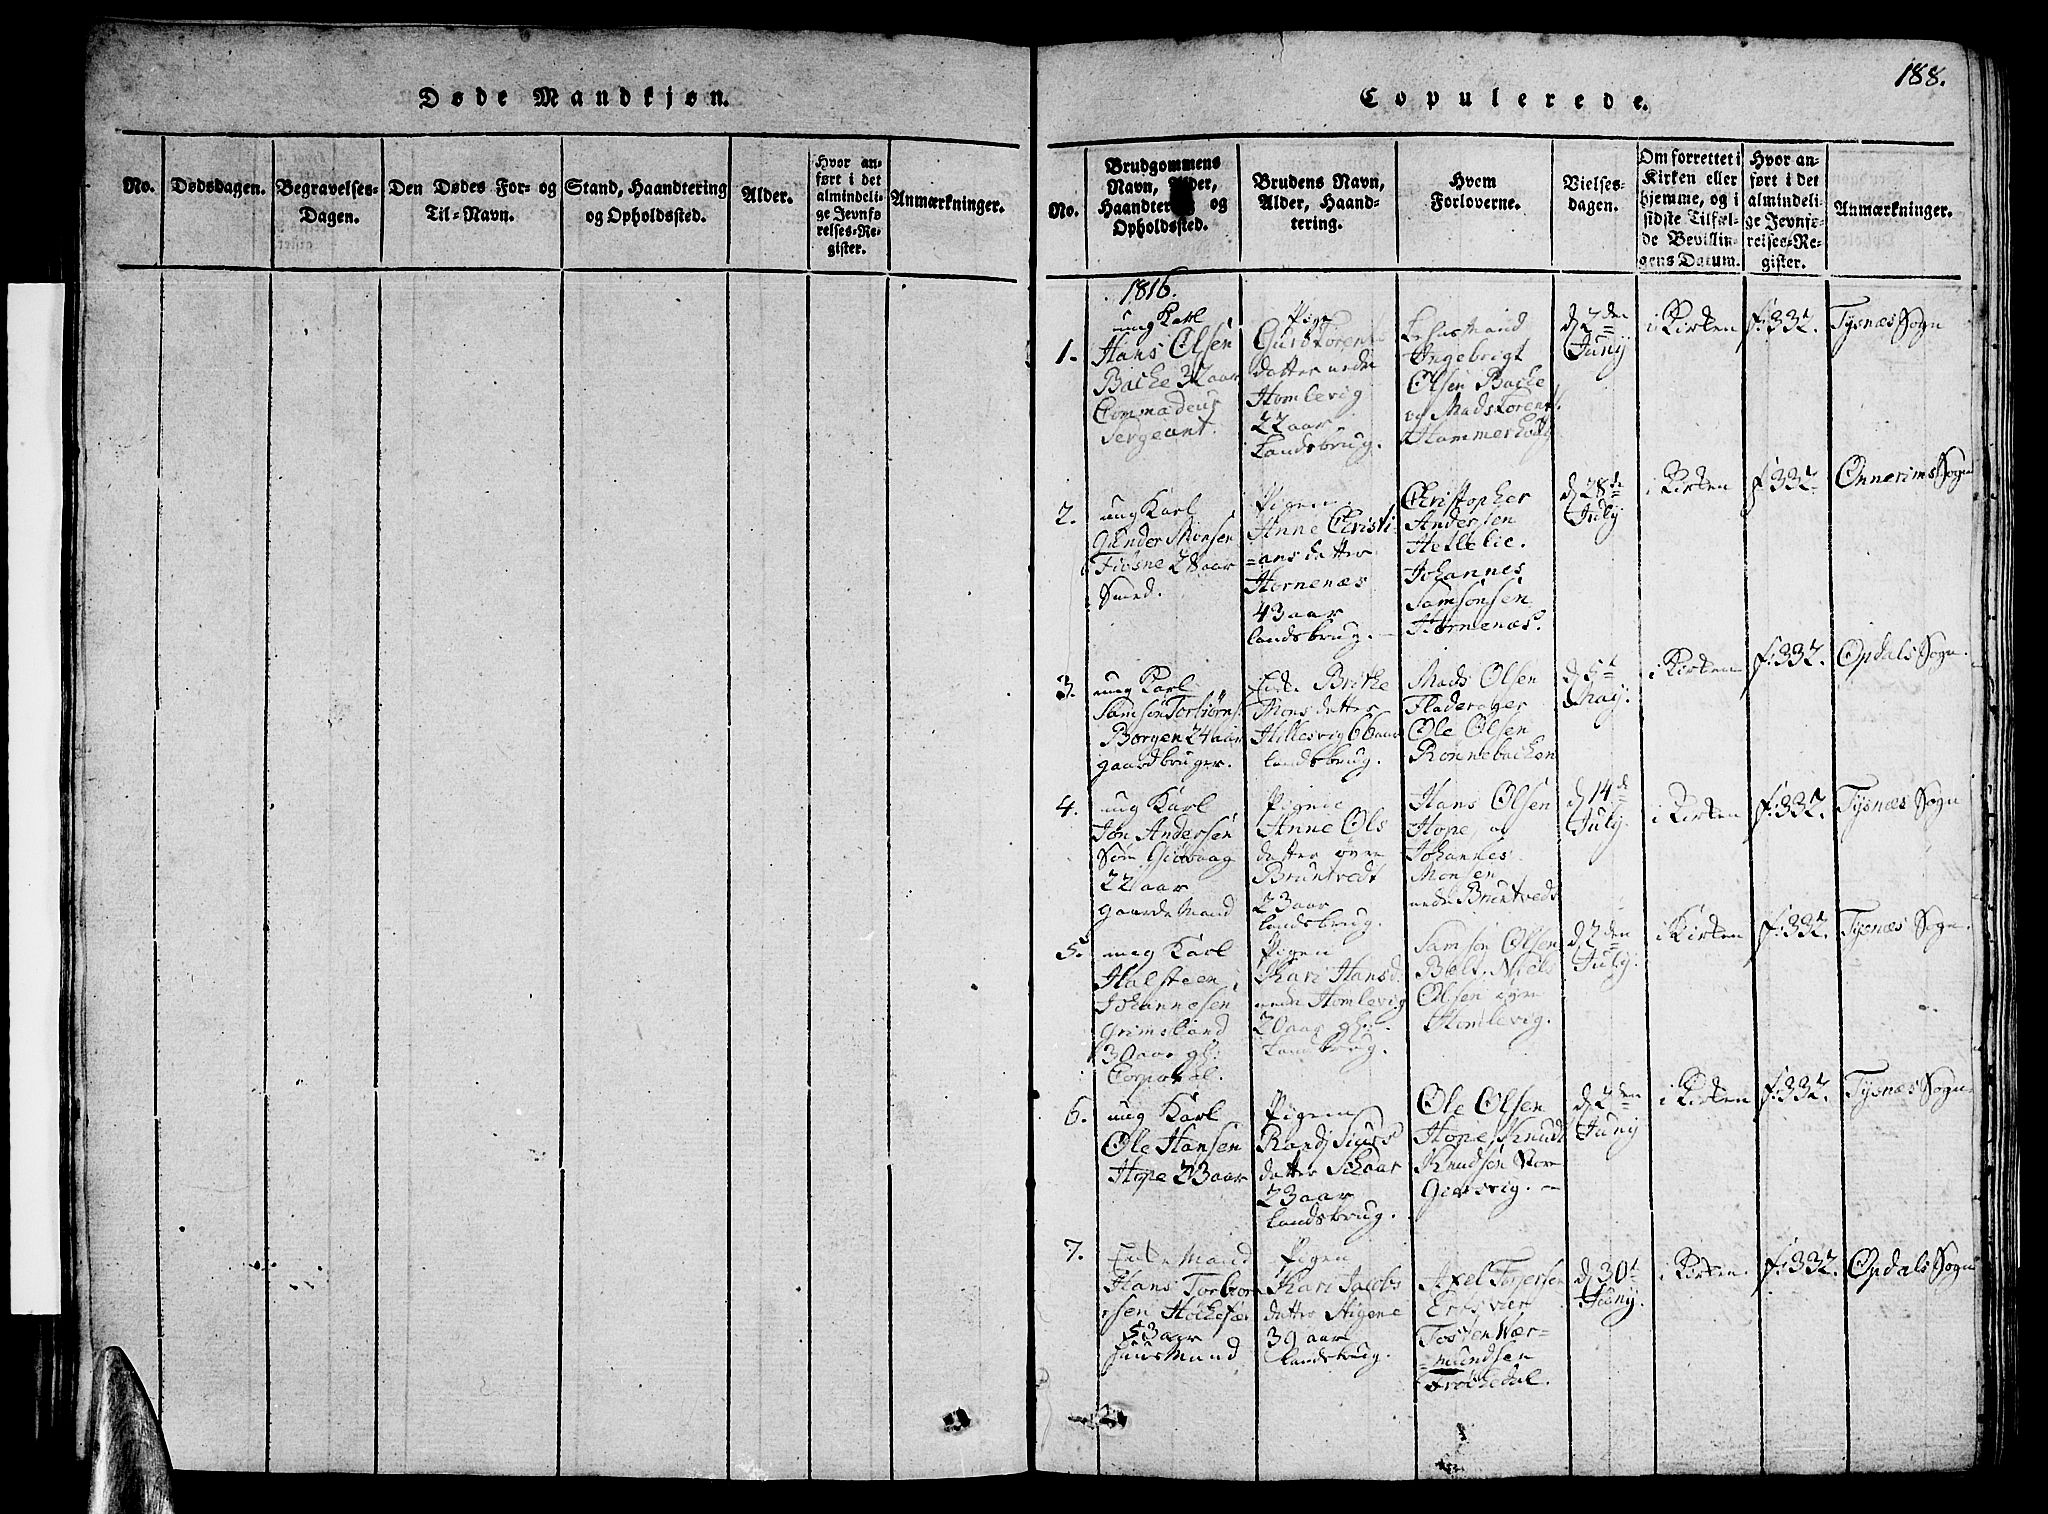 Døde Mandkjøn.
No.
Dødsdagen.
Begravelses-
Dagen.
Den Dødes For- og
Til-Navn.
Stand, Haandtering
og Opholdssted.
Alder.
Hvor an-
ført i det
almindeli-
ge Jevnfø
relses-Re-
gister.
Anmærkninger.
188.
Copulerede.
No.
Brudgommens
Navn, Alder,
Haandtering og
Opholdssted.
Brudens Navn,
Alder, Haand-
tering.
Hvem
Forloverne.
Vielses-
dagen.
Om forrettet i
Kirken eller
hjemme, og i
sidste Tilfæl-
de Bevillin-
gens Datum.
Hvor an-
ført i det
almindeli-
ge Jevnfø-
relses-Re-
gister.
Anmærkninger.
1816.
1.
ung Karl
Hans Olsen
Bache 32 aar
Commadeur
Sergeant.
Pige
Guro Torens
datter nedre
Homlevig
22 aar
Landsbrug.
Huusmand
Ingebrigt
Olsen Bache
og Mads Torens.
Hammerhoug
d 2den
Juny
i Kirken
f. 332.
Tysnæs Sogn
2.
ung Karl
Gunder Monsen
Fiøsne 28 aar
Smed.
Pigen
Anne Christi
=ans datter
Hornenæs
43 aar
landsbrug.
Christopher
Andersen
Hellelie.
Johannes
Samsonsen
Hornenæs.
d 28de
July
i Kirken
f. 332.
Onnerims Sogn
3.
ung Karl
Samson Torbiørns.
Borgen 24 aar
gaardbruger.
Enke Brithe
Mons datter
Hillesvig 66 aar
landsbrug.
Mads Olsen
Fladerager
Ole Olsen
Rønnebachen
d 5t
May.
i Kirken
f. 332.
Opdals Sogn.
4.
ung Karl
Jon Andersen
Søre Giøvaag
22 aar
gaarde Mand
Pigen
Anne Ols
datter øvre
Bruntvedt
23 aar
landsbrug.
Hans Olsen
Hope, og
Johannes
Monsen
nedre Bruntvedt
d 14de
July.
i Kirken
f. 332.
Tysnæs Sogn
5.
ung Karl
Halsteen
Johannesen
Grimsland
30 aar gl:
Corporal.
Pigen
Kari Hansd.
nedre Homlevig
20 aar gl:
Landsbrug.
Samson Olsen
Belt, Niels
Olsen øvre
Homlevig.
d 2den
July.
i Kirken
f. 332.
Tysnæs Sogn.
6.
ung Karl
Ole Hansen
Hope 23 aar
Pigen
Randi Siurs
datter Schaar
23 aar
landsbrug.
Ole Olsen
Hope, Knudt
Knudsen Store
Giersvig.
d 2den
Juny
i Kirken
f. 332.
Tysnæs Sogn
7.
Enke Mand
Hans Torbiørn
sen
53 aar
huus Mand
Pigen
Kari Jacobs
datter Stigene
39 aar
landsbrug.
Axel Torjersen
Erfsvier
Tosten Wær-
=mundsen
Frøchedal.
d 30t
Juny.
i Kirken.
f. 332.
Opdals Sogn